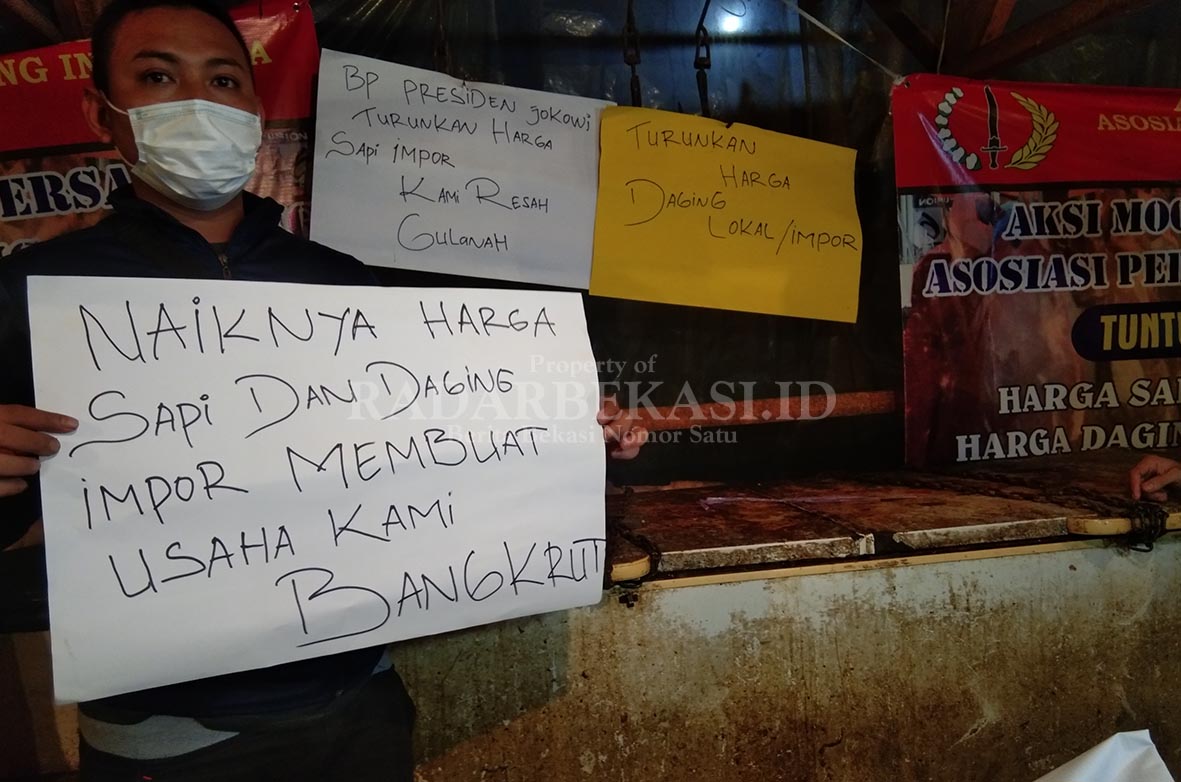 BP PRESIDEN JOKOWI
TURUNKAN HARGA
SAPI IMPOR
KAMI RESAH
GULANAH
TURUNKAN
HARGA
DAGING
LOKAL/IMPOR
NAIKNYA HARGA
SAPI DAN DAGING
IMPOR MEMBUAT
USAHA KAMI
BANGKRUT
NG IN
A
ERSA
ASOSIA
AKSI MOG
ASOSIASI PE
TUNTU
HARGA SA
HARGA DAGIN
Property of
RADARBEKASI.ID
Berita Bekasi Nomor Satu